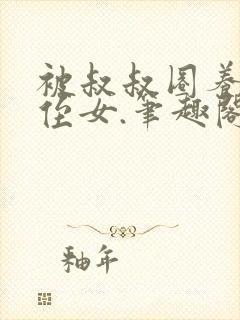 被叔叔圈养
侄女.笔趣阁
釉年